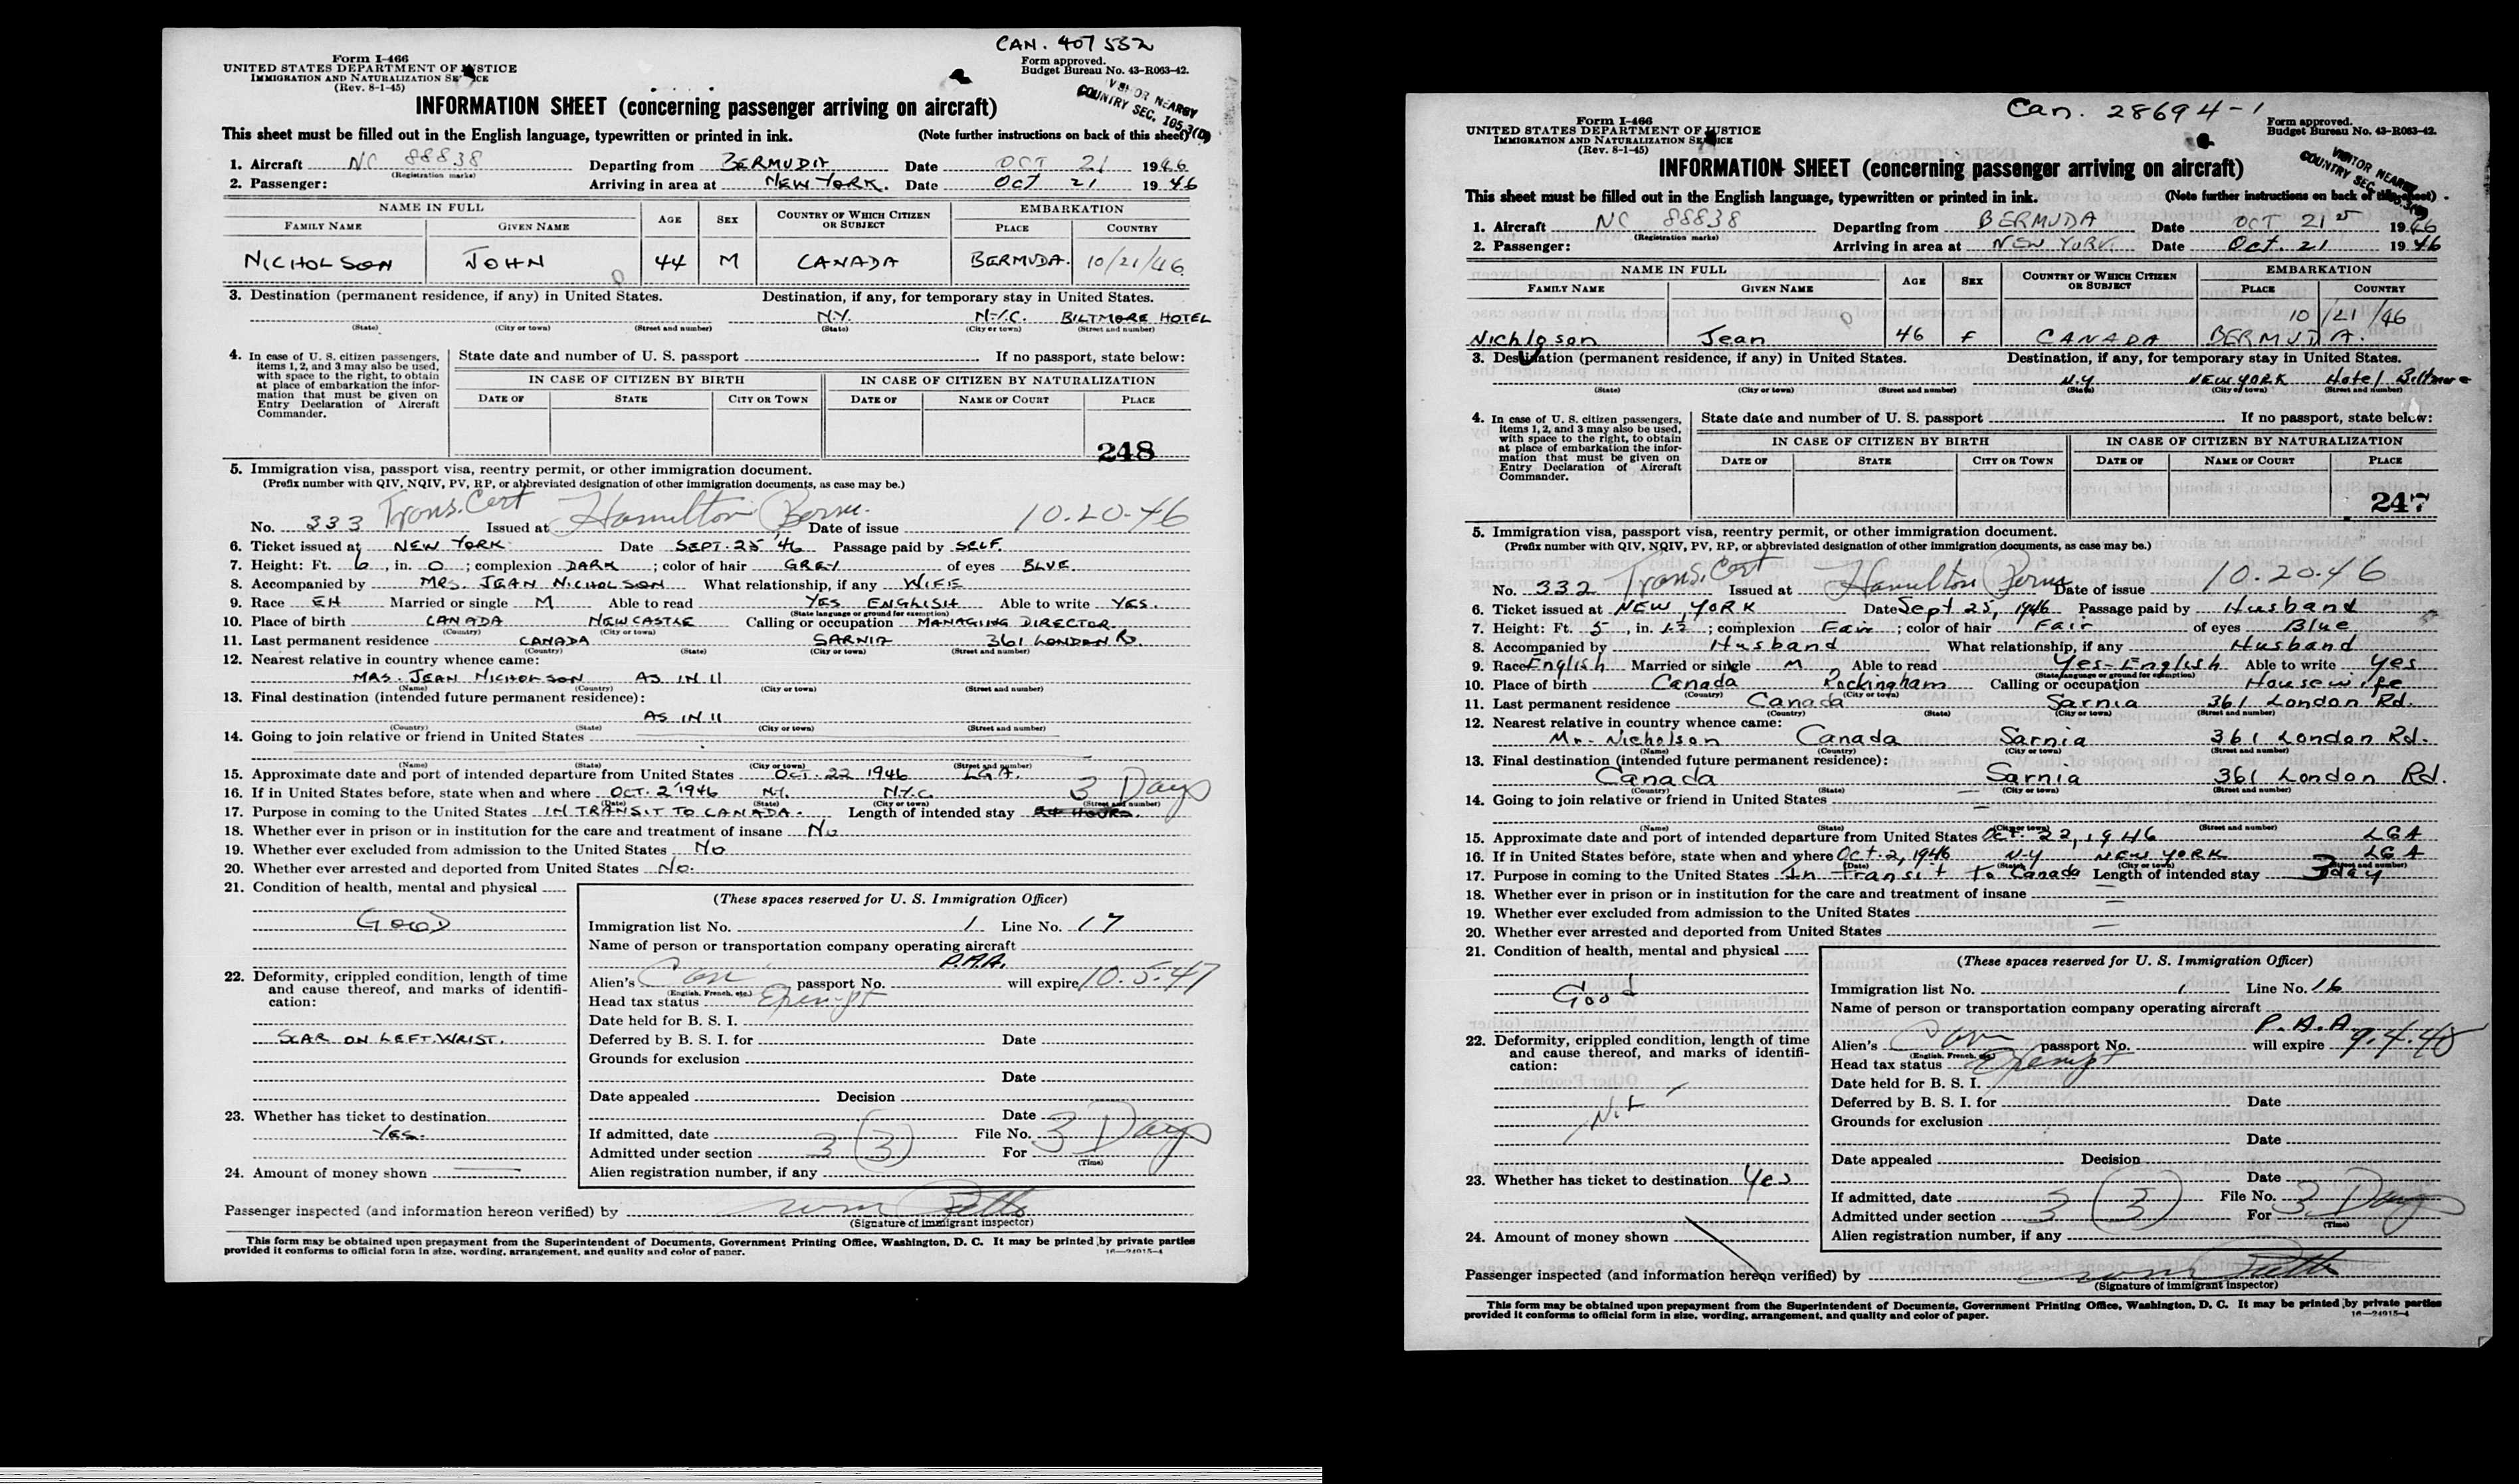 CAN. 407 532
Form I-466
UNITED STATES DEPARTMENT OF JUSTICE
IMMIGRATION AND NATURALIZATION SERVICE
(Rev. 8-1-45)
Form approved.
Budget Bureau No. 43-R063-42.
VISITOR NEARBY
COUNTRY SEC. 105.3(D)
INFORMATION SHEET (concerning passenger arriving on aircraft)
This sheet must be filled out in the English language, typewritten or printed in ink. (Note further instructions on back of this sheet)
1. Aircraft NC 88838 Departing from BERMUDA Date OCT 21 1946
(Registration marks)
2. Passenger: Arriving in area at NEW YORK. Date OCT 21 1946
NAME IN FULL AGE SEX COUNTRY OF WHICH CITIZEN OR SUBJECT EMBARKATION
FAMILY NAME GIVEN NAME PLACE COUNTRY
NICHOLSON JOHN 44 M CANADA BERMUDA. 10/21/46
3. Destination (permanent residence, if any) in United States. Destination, if any, for temporary stay in United States.
N.Y. N.Y.C. BILTMORE HOTEL
(State) (City or town) (Street and number) (State) (City or town) (Street and number)
4. In case of U. S. citizen passengers, items 1, 2, and 3 may also be used, with space to the right, to obtain at place of embarkation the information that must be given on Entry Declaration of Aircraft Commander.
State date and number of U. S. passport If no passport, state below:
IN CASE OF CITIZEN BY BIRTH IN CASE OF CITIZEN BY NATURALIZATION
DATE OF STATE CITY OR TOWN DATE OF NAME OF COURT PLACE
248
5. Immigration visa, passport visa, reentry permit, or other immigration document.
(Prefix number with QIV, NQIV, PV, RP, or abbreviated designation of other immigration documents, as case may be.)
No. 333 Trans. Cert Issued at Hamilton Berm. Date of issue 10.20.46
6. Ticket issued at NEW YORK Date SEPT. 25 '46 Passage paid by SELF.
7. Height: Ft. 6, in. 0; complexion DARK; color of hair GREY of eyes BLUE.
8. Accompanied by MRS. JEAN NICHOLSON What relationship, if any WIFE
9. Race EH Married or single M Able to read YES ENGLISH Able to write YES.
(State language or ground for exemption)
10. Place of birth CANADA NEWCASTLE Calling or occupation MANAGING DIRECTOR.
(Country) (City or town)
11. Last permanent residence CANADA SARNIA 361 LONDON RD.
(Country) (State) (City or town) (Street and number)
12. Nearest relative in country whence came:
MRS. JEAN NICHOLSON AS IN 11
(Name) (Country) (City or town) (Street and number)
13. Final destination (intended future permanent residence):
AS IN 11
(Country) (State) (City or town) (Street and number)
14. Going to join relative or friend in United States
(Name) (State) (City or town) (Street and number)
15. Approximate date and port of intended departure from United States OCT. 22 1946 LGA.
16. If in United States before, state when and where OCT. 2 1946 N.Y. N.Y.C. 3 Days
(Date) (State) (City or town) (Street and number)
17. Purpose in coming to the United States IN TRANSIT TO CANADA. Length of intended stay 24 HOURS.
18. Whether ever in prison or in institution for the care and treatment of insane No
19. Whether ever excluded from admission to the United States No
20. Whether ever arrested and deported from United States No.
21. Condition of health, mental and physical
GOOD
22. Deformity, crippled condition, length of time and cause thereof, and marks of identification:
SCAR ON LEFT WRIST.
23. Whether has ticket to destination
YES.
24. Amount of money shown
(These spaces reserved for U. S. Immigration Officer)
Immigration list No. 1 Line No. 17
Name of person or transportation company operating aircraft
P.A.A.
Alien's Can passport No. will expire 10.5.47
(English, French, etc.)
Head tax status Exempt
Date held for B. S. I.
Deferred by B. S. I. for Date
Grounds for exclusion
Date
Date appealed Decision
Date
If admitted, date File No.
Admitted under section 3 (3) For 3 Days
(Time)
Alien registration number, if any
Passenger inspected (and information hereon verified) by
(Signature of immigrant inspector)
This form may be obtained upon prepayment from the Superintendent of Documents, Government Printing Office, Washington, D. C. It may be printed by private parties
provided it conforms to official form in size, wording, arrangement, and quality and color of paper.
16—24915-4
Can. 28694-1
Form I-466
UNITED STATES DEPARTMENT OF JUSTICE
IMMIGRATION AND NATURALIZATION SERVICE
(Rev. 8-1-45)
Form approved.
Budget Bureau No. 43-R063-42.
VISITOR NEARBY
COUNTRY SEC.
INFORMATION SHEET (concerning passenger arriving on aircraft)
This sheet must be filled out in the English language, typewritten or printed in ink. (Note further instructions on back of this sheet)
1. Aircraft NC 88838 Departing from BERMUDA Date OCT 21 1946
(Registration marks)
2. Passenger: Arriving in area at NEW YORK Date Oct. 21 1946
NAME IN FULL AGE SEX COUNTRY OF WHICH CITIZEN OR SUBJECT EMBARKATION
FAMILY NAME GIVEN NAME PLACE COUNTRY
10/21/46
Nichloson Jean 46 F CANADA BERMUDA.
3. Destination (permanent residence, if any) in United States. Destination, if any, for temporary stay in United States.
N.Y NEW YORK Hotel Biltmore
(State) (City or town) (Street and number) (State) (City or town) (Street and number)
4. In case of U. S. citizen passengers, items 1, 2, and 3 may also be used, with space to the right, to obtain at place of embarkation the information that must be given on Entry Declaration of Aircraft Commander.
State date and number of U. S. passport If no passport, state below:
IN CASE OF CITIZEN BY BIRTH IN CASE OF CITIZEN BY NATURALIZATION
DATE OF STATE CITY OR TOWN DATE OF NAME OF COURT PLACE
247
5. Immigration visa, passport visa, reentry permit, or other immigration document.
(Prefix number with QIV, NQIV, PV, RP, or abbreviated designation of other immigration documents, as case may be.)
No. 332 Trans. Cert Issued at Hamilton Berm Date of issue 10.20.46
6. Ticket issued at NEW YORK Date Sept 25, 1946 Passage paid by Husband
7. Height: Ft. 5, in. ; complexion Fair; color of hair Fair of eyes Blue
8. Accompanied by Husband What relationship, if any Husband
9. Race English Married or single M Able to read Yes-English Able to write yes
(State language or ground for exemption)
10. Place of birth Canada Rockingham Calling or occupation Housewife
(Country) (City or town)
11. Last permanent residence Canada Sarnia 361 London Rd.
(Country) (State) (City or town) (Street and number)
12. Nearest relative in country whence came:
Mr. Nicholson Canada Sarnia 361 London Rd.
(Name) (Country) (City or town) (Street and number)
13. Final destination (intended future permanent residence):
Canada Sarnia 361 London Rd.
(Country) (State) (City or town) (Street and number)
14. Going to join relative or friend in United States
(Name) (State) (City or town) (Street and number)
15. Approximate date and port of intended departure from United States Oct. 22, 1946 LGA
16. If in United States before, state when and where Oct. 2, 1946 N-Y NEW YORK LGA
(Date) (State) (City or town) (Street and number)
17. Purpose in coming to the United States In transit to Canada Length of intended stay 3 day
18. Whether ever in prison or in institution for the care and treatment of insane
19. Whether ever excluded from admission to the United States
20. Whether ever arrested and deported from United States
21. Condition of health, mental and physical
Good
22. Deformity, crippled condition, length of time and cause thereof, and marks of identification:
23. Whether has ticket to destination Yes
24. Amount of money shown
(These spaces reserved for U. S. Immigration Officer)
Immigration list No. 1 Line No. 16
Name of person or transportation company operating aircraft
P.A.A.
Alien's Can passport No. will expire
(English, French, etc.)
Head tax status Exempt
Date held for B. S. I.
Deferred by B. S. I. for Date
Grounds for exclusion
Date
Date appealed Decision
Date
If admitted, date File No.
Admitted under section 3 (3) For 3 Days
(Time)
Alien registration number, if any
Passenger inspected (and information hereon verified) by
(Signature of immigrant inspector)
This form may be obtained upon prepayment from the Superintendent of Documents, Government Printing Office, Washington, D. C. It may be printed by private parties
provided it conforms to official form in size, wording, arrangement, and quality and color of paper.
16—24915-4